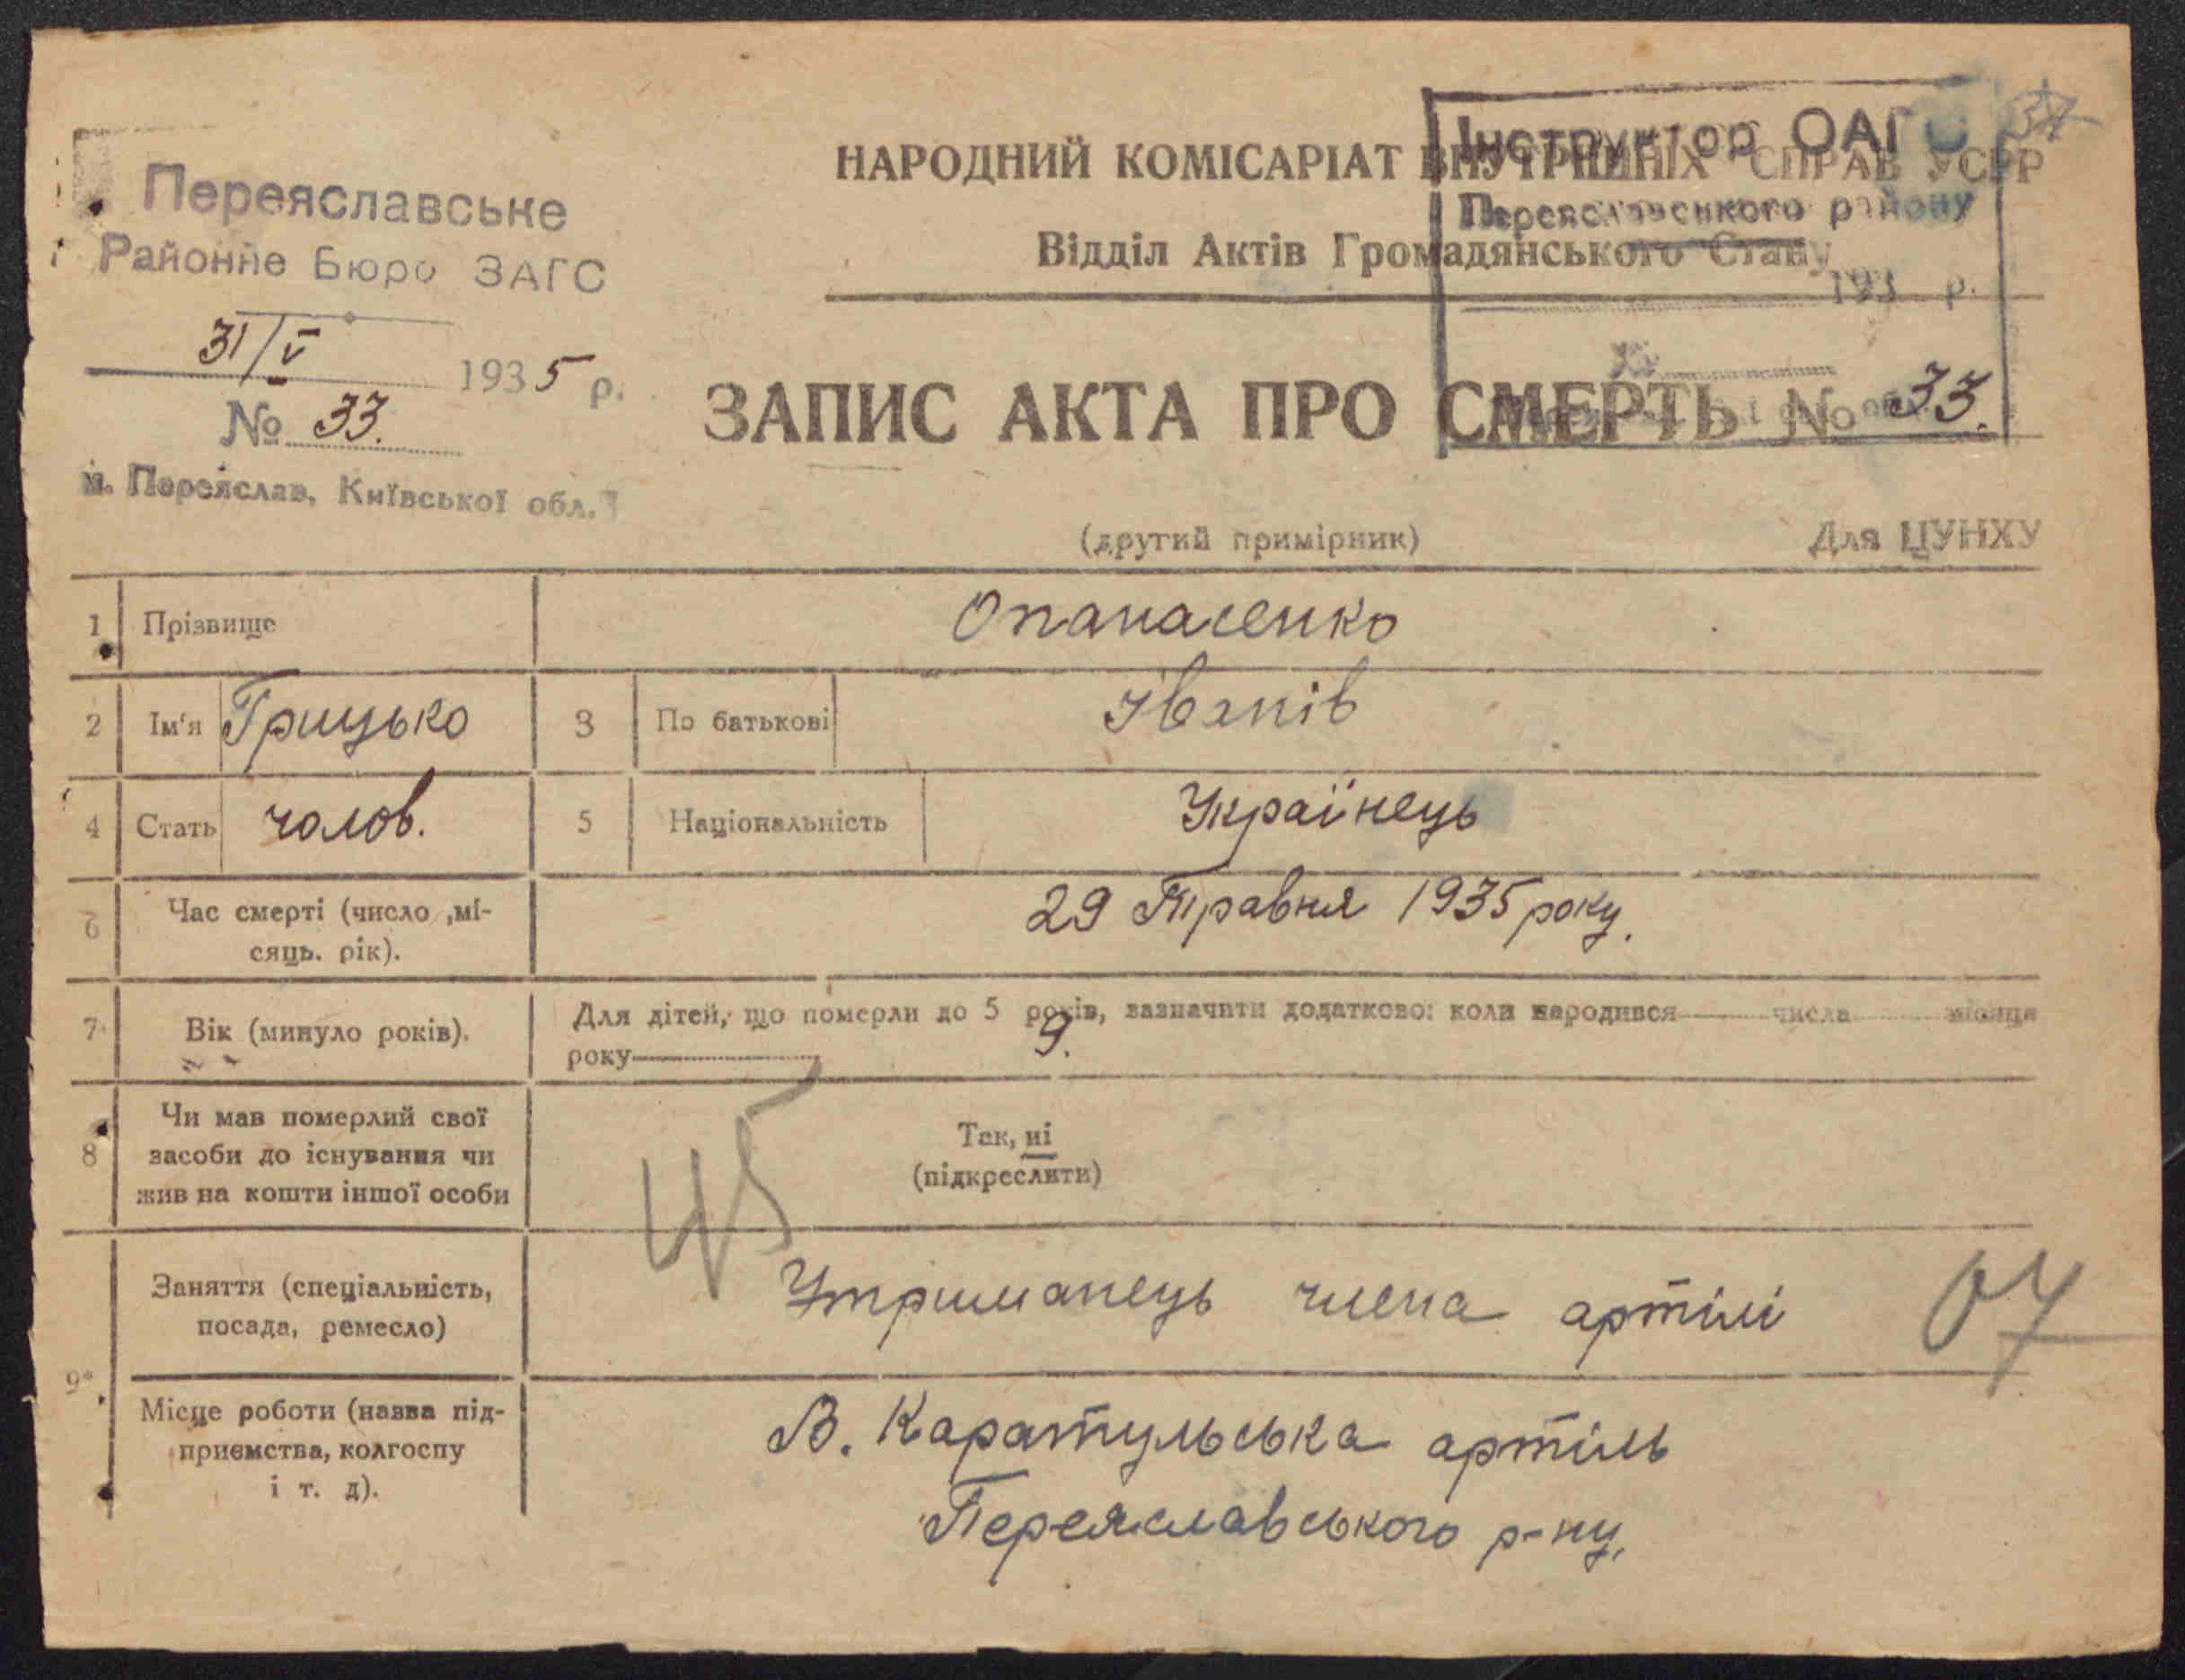 Переяславське
Районне Бюро ЗАГС
31/V 1935 р.
№ 33.
м. Переяслав, Київської обл.
НАРОДНИЙ КОМІСАРІАТ ВНУТРІШНІХ СПРАВ УСРР
Відділ Актів Громадянського Стану
Інструктор ОАГС
Переяславського району
193 р.
№
37
ЗАПИС АКТА ПРО СМЕРТЬ № 33.
(другий примірник)
Для ЦУНХУ
1 Прізвище Опанасенко
2 Ім'я Грицько 3 По батькові Іванів
4 Стать чолов. 5 Національність Українець
6 Час смерті (число ,мі-
сяць. рік). 29 Травня 1935 року.
7 Вік (минуло років). Для дітей, що померли до 5 років, зазначити додатково: коли народився числа місяця
року 9.
8 Чи мав померлий свої
засоби до існування чи
жив на кошти іншої особи
Так, ні
(підкреслити)
45
9* Заняття (спеціальність,
посада, ремесло) Утриманець члена артілі
04
Місце роботи (назва під-
приємства, колгоспу
і т. д).
В. Каратульська артіль
Переяславського р-ну.